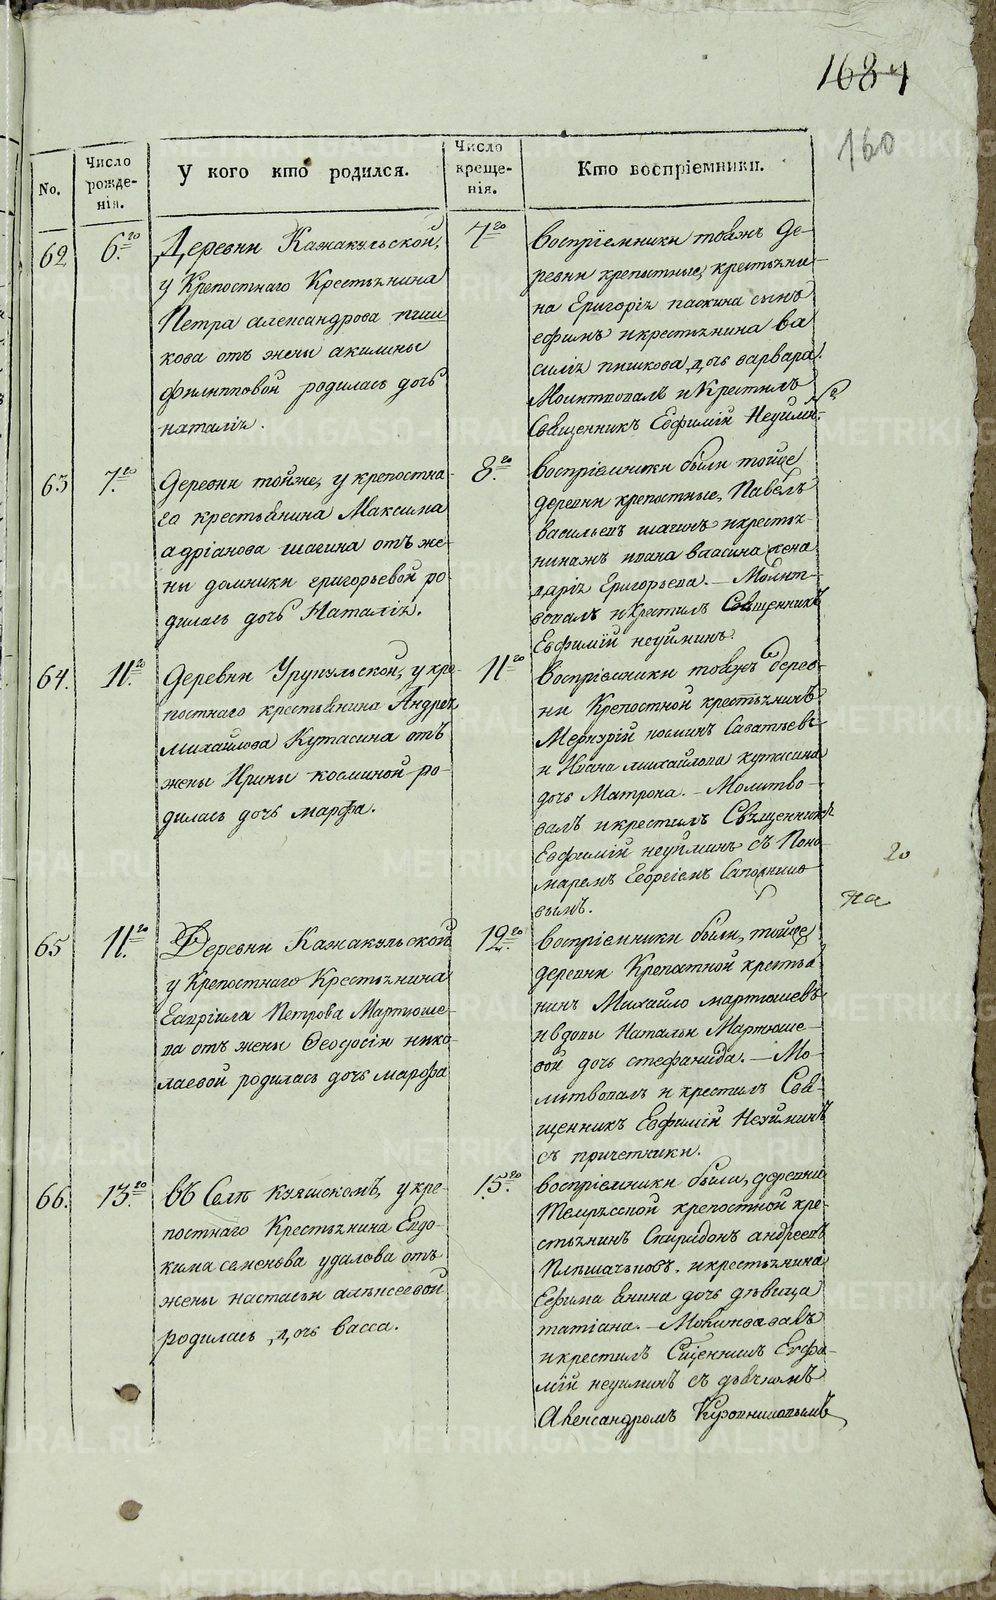 1684
160
No.
Число рожде-нія.
У кого кто родился.
Число креще-нія.
Кто воспріемники.
62
6.го
Деревни Кажакульской,
у Крепостнаго Крестьянина
Петра александрова пши-
кова отъ жены акилины
филипповой родилась дочь
наталія.
7го
Воспріемники тояжъ де-
ревни крепостные, крестьяни-
на Григорія паскина сынъ
ефимъ и крестьянина ва
силія пшикова, дочь варвара.
Молитвовалъ и Крестилъ
Священникъ Евфимій Неуймин.
63
7.го
Деревни тойже, у крепостна-
го крестьянина Максима
адріанова шагина отъ же-
ны домники григорьевой ро-
дилась дочь Наталія.
8.го
воспріемники были тойже
деревни крепостные, Павелъ
васильевъ шагинъ и кресть-
янина жъ ивана жена
дарія Григорьева. — Молит-
вовалъ и Крестилъ Священникъ
Евфимій неуйминъ.
64.
11.го
Деревни Урукульской, у кре-
постнаго крестьянина Андрея
михайлова Кутасина отъ
жены Ирины косминой ро-
дилась дочь марфа.
11го
Воспріемники тояжъ дерев-
ни Крепостной крестьянинъ
Меркурій косминъ Саватѣевъ
и Ивана михайлова кутасина
дочь Матрона. — Молитво-
валъ и крестилъ Священникъ
Евфимій неуйминъ съ Поно-
маремъ Георгіемъ Сапожнико
вымъ.
20
на
65
11.го
Деревни Кажакульской
у Крепостнаго Крестьянина
Гавріила Петрова Мартюше-
ва отъ жены Феодосіи нико-
лаевой родилась дочь марфа
12го
воспріемники были, тойже
деревни Крепостной крестья
нинъ Михайло мартюшевъ
и вдовы Натальи Мартюше-
вой дочь стефанида. — Мо-
литвовалъ и крестилъ Свя-
щенникъ Евфимій Неуйминъ
съ причетники.
66.
13го
въ Селѣ куяшскомъ, у кре-
постнаго Крестьянина Евдо-
кима семенова удалова отъ
жены настасьи алексеевой
родилась, дочь васса.
15.го
воспріемники были, деревни
крепостной кре-
стьянинъ Спиридонъ андреевъ
и крестьянина
Ефима дочь дѣвица
татіана. — Молитвовалъ
и крестилъ Сщенникъ Евфи-
мій неуйминъ съ дьячкомъ
Александромъ